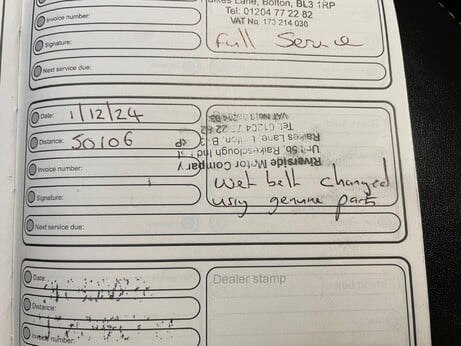 Raikes Lane, Bolton, BL3 1RP
Tel: 01204 77 22 82
VAT No. 173 214 036
Invoice number:
Signature:
Full Service
Next service due:
Date: 1/12/24
Distance: 50106
Riverside Motor Company
Unit 5b, Raikesclough Ind
Raikes Lane,
Tel 01204 77 22 82
VAT No.
Invoice number:
Signature:
wet belt changed
using genuine parts
Next service due:
Date:
Dealer stamp
Distance:
Invoice number: